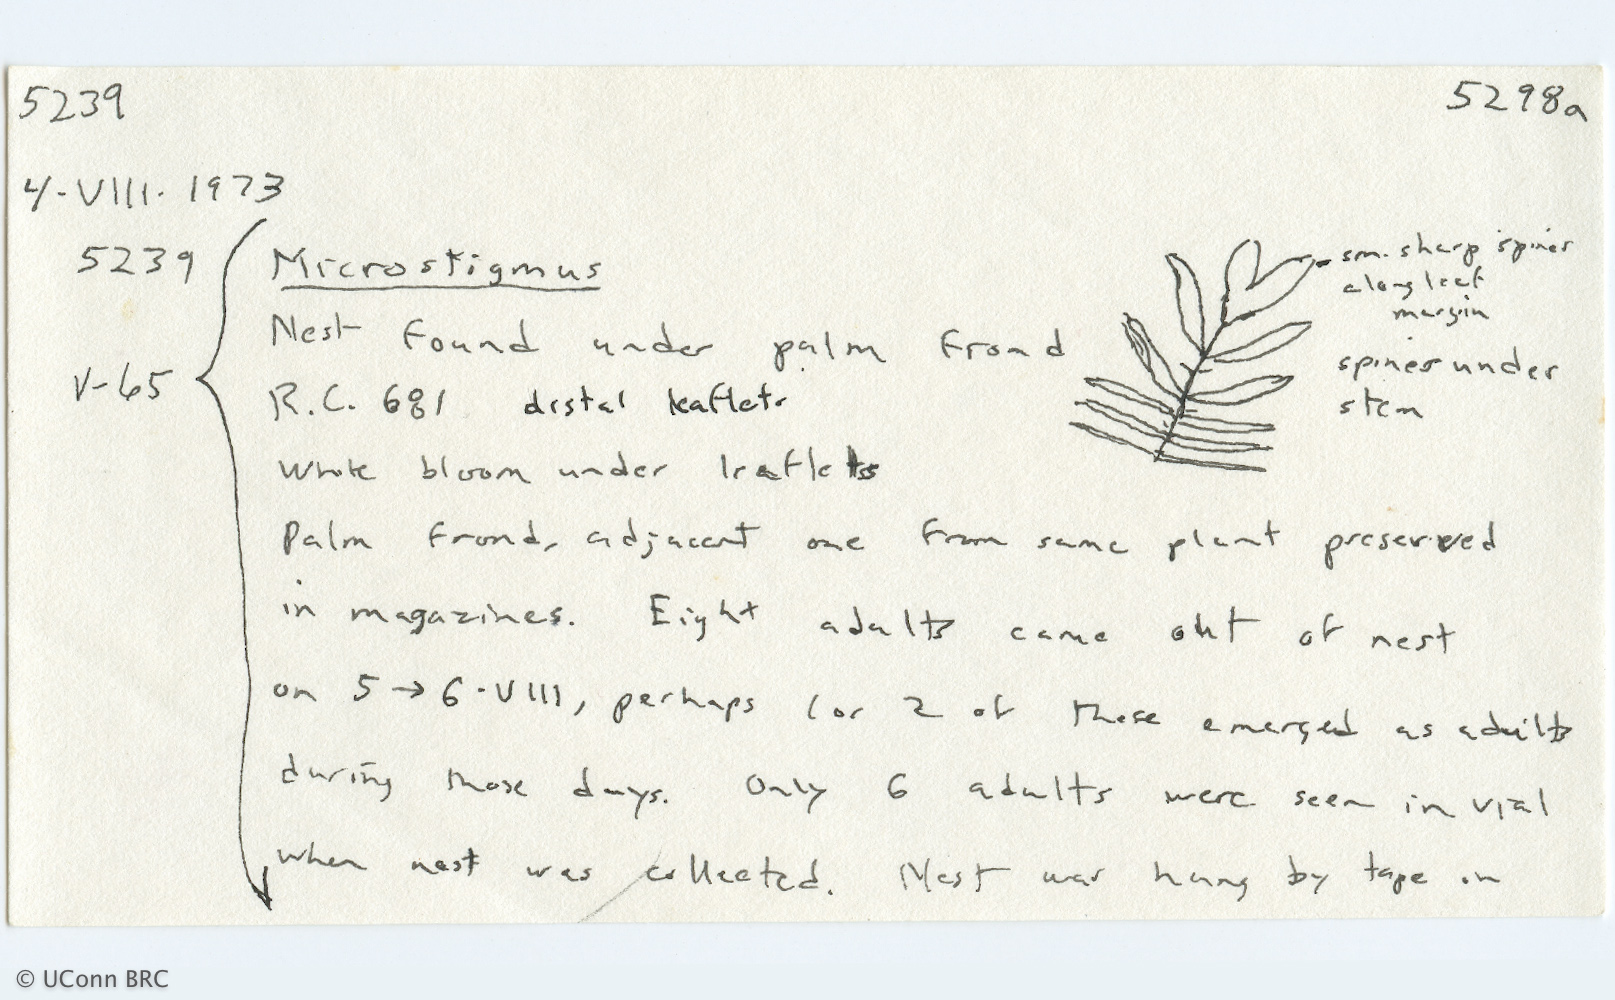 5239
5298a
4-VIII-1973
5239
Microstigmus
sm. sharp spines
along leaf
margin
Nest found under palm frond
spines under
stem
V-65
R.C. 681 distal leaflets
White bloom under leaflets
Palm frond, adjacent one from same plant preserved
in magazines. Eight adults came out of nest
on 5→6-VIII, perhaps 1 or 2 of these emerged as adults
during those days. Only 6 adults were seen in vial
when nest was collected. Nest was hung by tape in
© UConn BRC